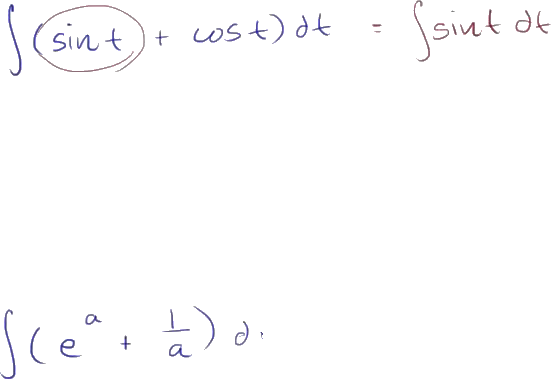 ∫(sin t + cos t) dt = ∫sin t dt
∫(e^a + 1/a) d